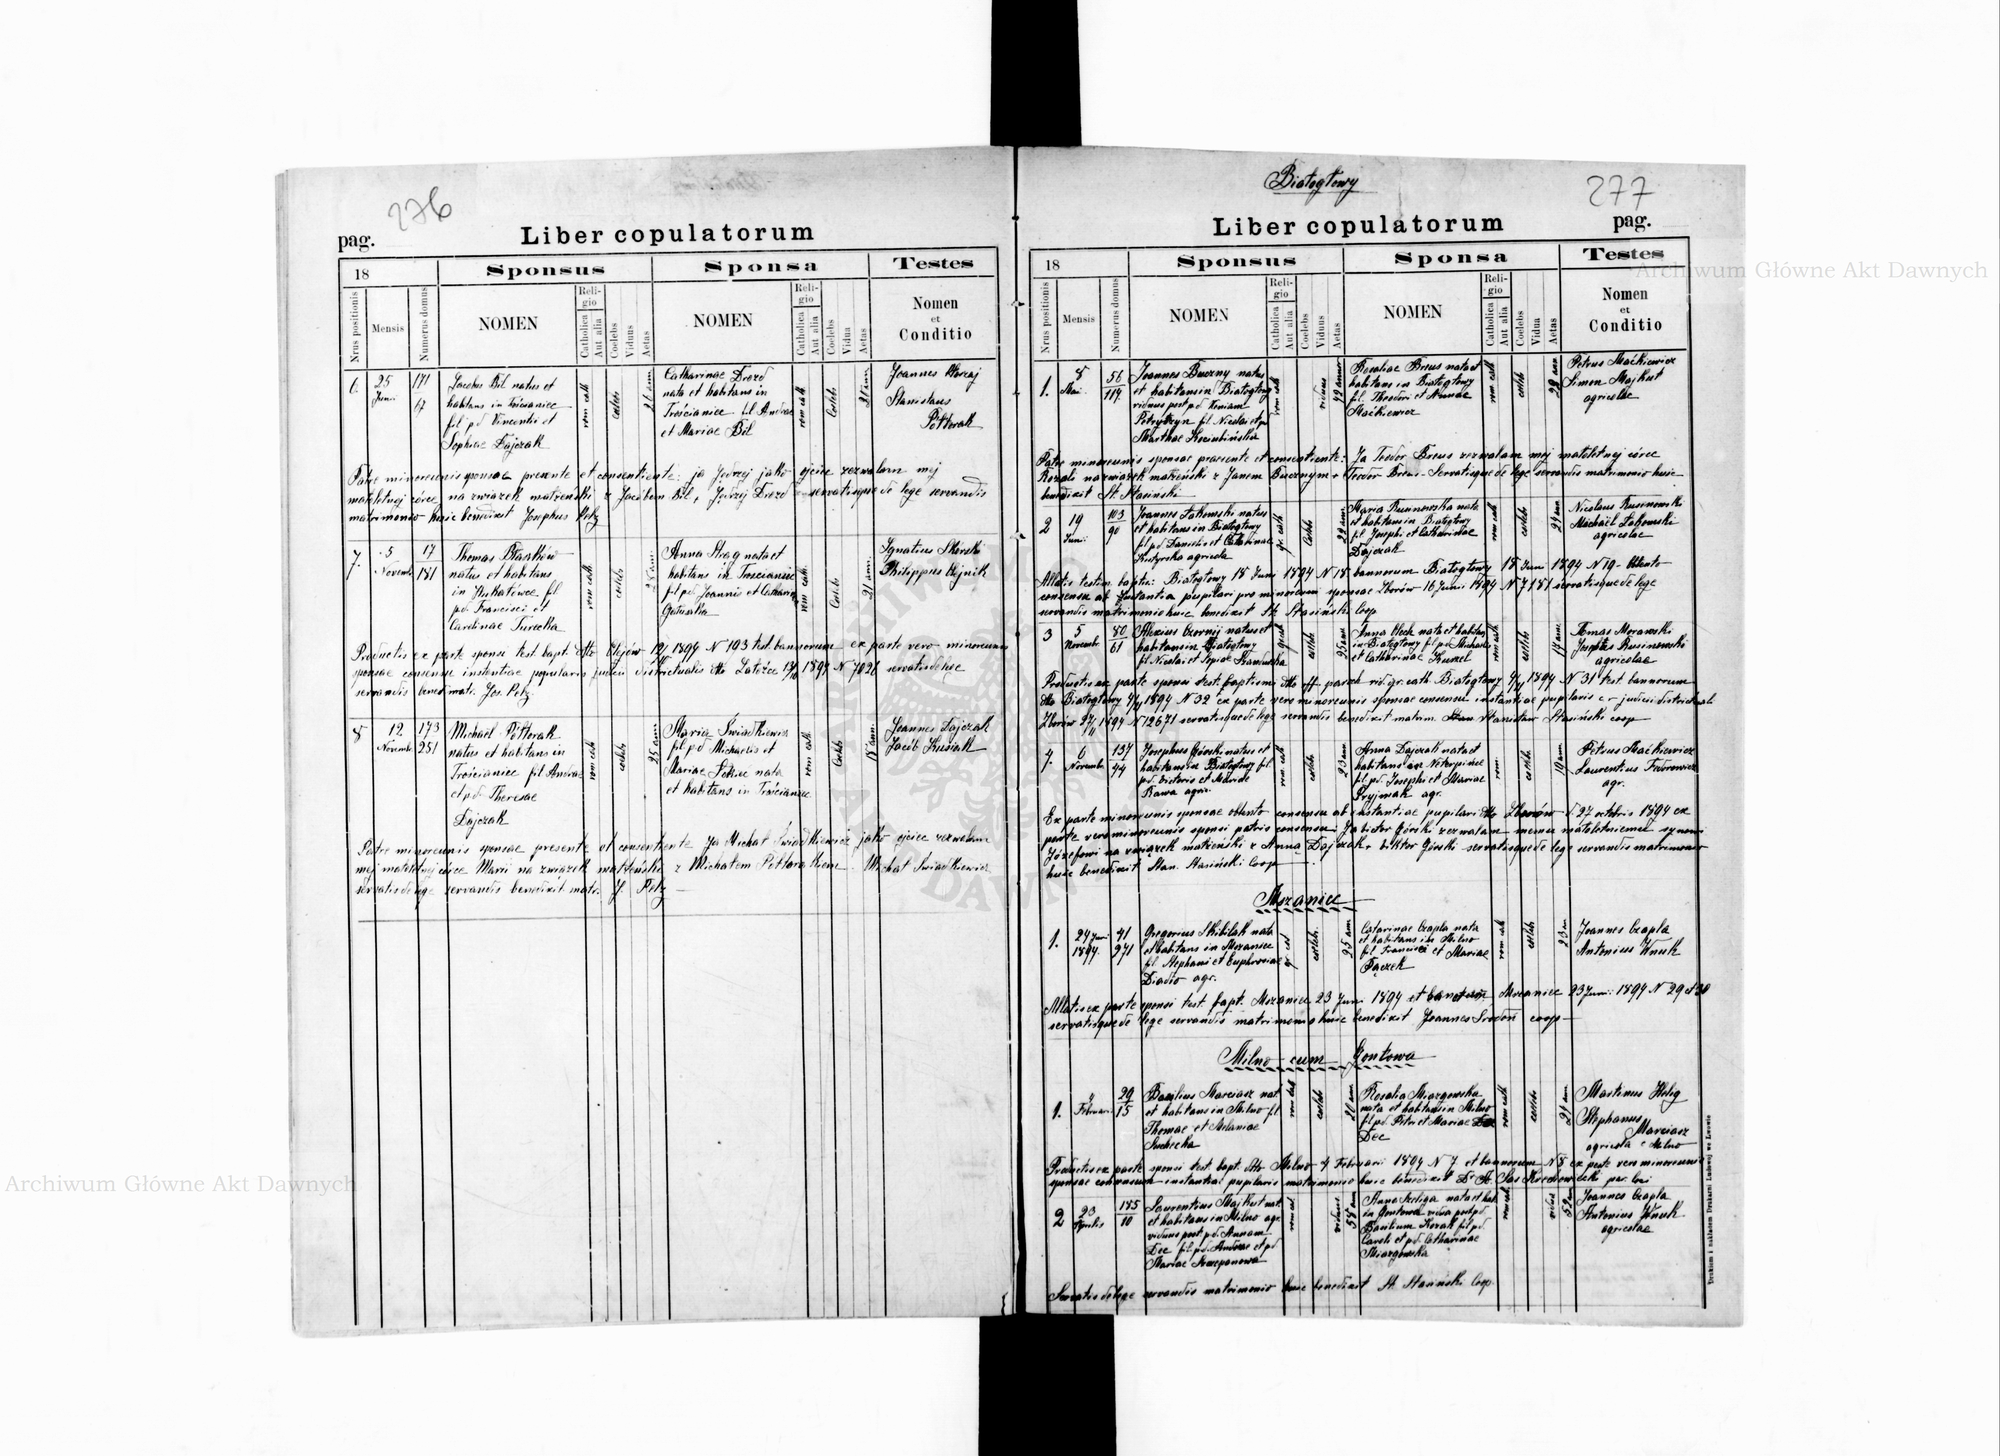 276
pag.
Liber copulatorum
18
Sponsus
Sponsa
Testes
Nrus positionis
Mensis
Numerus domus
NOMEN
Religio
Catholica
Aut alia
Coelebs
Viduus
Aetas
NOMEN
Religio
Catholica
Aut alia
Coelebs
Vidua
Aetas
Nomen
et
Conditio
6
25
Junii
171
67
Jacobus Bil natus et
habitans in Trościaniec
fil pd Vincentii et
Sophiae Dajczak
rom cath
coelebs
Catharinae Drozd
nata et habitans in
Trościaniec fil Andreae
et Mariae Bil
rom cath
Coelebs
21 ann
Joannes
Stanislaus
Półtorak
Patre minorennis sponsae presente et consentiente: ja Jędrzej jako ojciec zezwalam mej
małoletniej córce na związek małżeński z Jacobem Bil, Jędrzej Drozd servatisque de lege servandis
matrimonio huic benedixit Josephus Pelz
7.
5
Novemb
17
181
Thomas
natus et habitans
in Hukałowce fil
pd. Francisci et
Carolinae Turecka
rom cath
coelebs
28 ann
Anna nata et
habitans in Trościaniec
fil pd Joannis et Catharinae
rom cath
Coelebs
21 ann
Ignatius Skórski
Philippus Olejnik
Productis ex parte sponsi test. bapt. dto Olejów 1894 N 193 test. bannorum ex parte vero minorennis
sponsae consensu instantiae pupilaris judicii districtualis dto Załoźce 1894 N 7026 servatis de lege
servandis bened. mat. Jos. Pelz
8
12
Novemb
173
251
Michael Półtorak
natus et habitans in
Trościaniec fil Andreae
et pd. Theresae
Dajczak
rom cath
coelebs
Maria Świadkiewicz
fil pd Michaelis et
Mariae nata
et habitans in Trościaniec
rom cath
Coelebs
18 ann
Joannes Dajczak
Jacob Kusiak
Patre minorennis sponsae presente et consentiente Ja Michał Świadkiewicz jako ojciec zezwalam
mej małoletniej córce Marii na związek małżeński z Michałem Półtorakiem. Michał Świadkiewicz
servatis de lege servandis benedixit matr. J Pelz
Białogłowy
277
Liber copulatorum
pag.
18
Sponsus
Sponsa
Testes
Nrus positionis
Mensis
Numerus domus
NOMEN
Religio
Catholica
Aut alia
Coelebs
Viduus
Aetas
NOMEN
Religio
Catholica
Aut alia
Coelebs
Vidua
Aetas
Nomen
et
Conditio
1.
8
Mai
56
119
Joannes Buczny natus
et habitans in Białogłowy
viduus post pd
fil Nicolai et pd
Marthae
rom cath
viduus
42 annor
Rosaliae Breus nata et
habitans in Białogłowy
fil Theodori et Annae
Maćkiewicz
rom cath
coelebs
22 ann
Petrus Maćkiewicz
Simon Majkut
agricolae
Patre minorennis sponsae praesente et consentiente: Ja Teodor Breus zezwalam mej małoletniej córce
Rozali na związek małżeński z Janem Bucznym. Teodor Breus. Servatisque de lege servandis matrimonio huic
benedixit St Stasiński
2
19
Junii
103
90
Joannes Łakomski natus
et habitans in Białogłowy
fil pd Danielis et Catharinae
Kostyrska agricola
gr. cath
Coelebs
Maria Rusinowska nata
et habitans in Białogłowy
fil Josephi et Catharinae
Dajczak
rom cath
coelebs
Nicolaus Rusinowski
Michaël Łakomski
agricolae
Allatis testim. baptis: Białogłowy 18 Juni 1894 N 18 bannorum Białogłowy 18 Juni 1894 N 19 obtento
consensu ab Instantia pupilari pro minorenni sponsae Zborów 16 Junii 1894 N 7181 servatisque de lege
servandis matrimonio huic benedixit St. Stasiński Coop
3
5
Novembr
80
61
Alexius natus et
habitans in Białogłowy
fil Nicolai et
gr cath
coelebs
25 ann
Anna nata et habitans
in Białogłowy fil pd. Michaelis
et Catharinae
rom cath
coelebs
19 ann
Tomas Morawski
Josephus Rusinowski
agricolae
Productis ex parte sponsi test. baptismi dto off. paroch. rit. gr. cath Białogłowy 1894 N 31 test. bannorum
dto Białogłowy 1894 N 32 ex parte vero minorennis sponsae consensu instantiae pupilaris judicii districtualis
Zborów 1894 N 12671 servatisque de lege servandis benedixit matrim. Stanisław Stasiński coop
4.
6
Novembr
137
44
Josephus Górski natus et
habitans in Białogłowy fil
pd. Victoris et Mariae
Rawa agr.
rom cath
coelebs
23 ann
Anna Dajczak nata et
habitans
fil pd. Josephi et Mariae
Pryjmak agr.
rom.
coelebs
19 ann
Petrus Maćkiewicz
Laurentius Fedorowicz
agr.
Ex parte minorennis sponsae obtento consensu ab instantiae pupilari dto Zborów d. 27 octobris 1894 ex
parte vero minorennis sponsi patris consensu: Ja Wiktor Górski zezwalam memu małoletniemu synowi
Józefowi na związek małżeński z Anną Dajczak. Wiktor Górski servatisque de lege servandis matrimonio
huic benedixit Stan. Stasiński Coop
Mszaniec
1.
24 Juni
1894.
41
271
Gregorius Skibilak nata
et habitans in Mszaniec
fil. Stephani et Euphrosiae
agr.
gr cat
coelebs.
25 ann
Catarinae Czapla nata
et habitans in Milno
fil Francisci et Mariae
Pączek
rom cath
coelebs
23 an
Joannes Czapla
Antonius Wnuk
Allatis ex parte sponsi test. bapt. Mszaniec 23 Juni 1894 et bannorum Mszaniec 23 Juni 1894 N 29 et 30
servatisque de lege servandis matrimonio huic benedixit Joannes Środoń coop
Milno cum Gontowa
1.
4
Februar.
29
15
Basilius Marciasz nat.
et habitans in Milno fil
Thomae et Melaniae
Suchecka
rom cat
coelebs
Rosalia Miazgowska
nata et habitans in Milno
fil pd. Petri et Mariae
Dec
rom cath
coelebs
21 ann
Martinus Helig
Stephanus
Marciasz
agricola e Milno
Productis ex parte sponsi test. bapt. dto Milno 4 Februarii 1894 N 7 et bannorum N 8 ex parte vero minorennis
sponsae consensum instantiae pupilaris matrimonio huic benedixit
2
23
Aprilis
185
10
Laurentius Majkut nat.
et habitans in Milno agr.
viduus post pd. Annam
Dec fil pd. Andreae et pd
Mariae Szczepanowa
rom cat
viduus
58 ann
Anna Szeliga nata et hab.
in Gontowa vidua post pd.
Basilium Nowak fil pd.
Caroli et pd. Catharinae
Miazgowska
rom cath
vidua
52 an
Joannes Czapla
Antonius Wnuk
agricolae
Servatis de lege servandis matrimonio huic benedixit St. Stasiński Coop.
Drukiem i nakładem Drukarni Ludowej we Lwowie
Archiwum Główne Akt Dawnych
Archiwum Główne Akt Dawnych